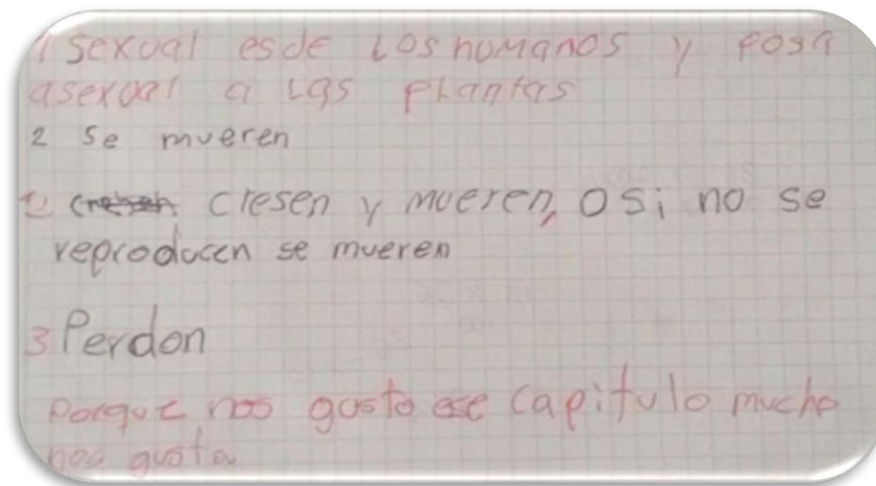 1 sexual esde Los humanos y
asexual a Las PLantas
2 Se mueren
cresen y mueren, O Si no se
reproducen se mueren
3 Perdon
Porque nos gusto ese capitulo mucho
nos gusta